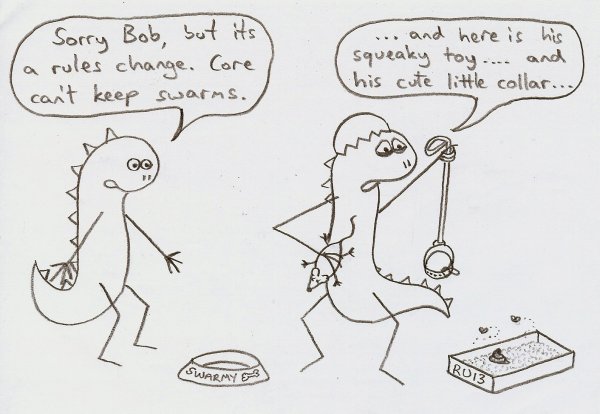 Sorry Bob, but its
a rules change. Core
can't keep swarms.
... and here is his
squeaky toy.... and
his cute little collar...
SWARMY
RU13